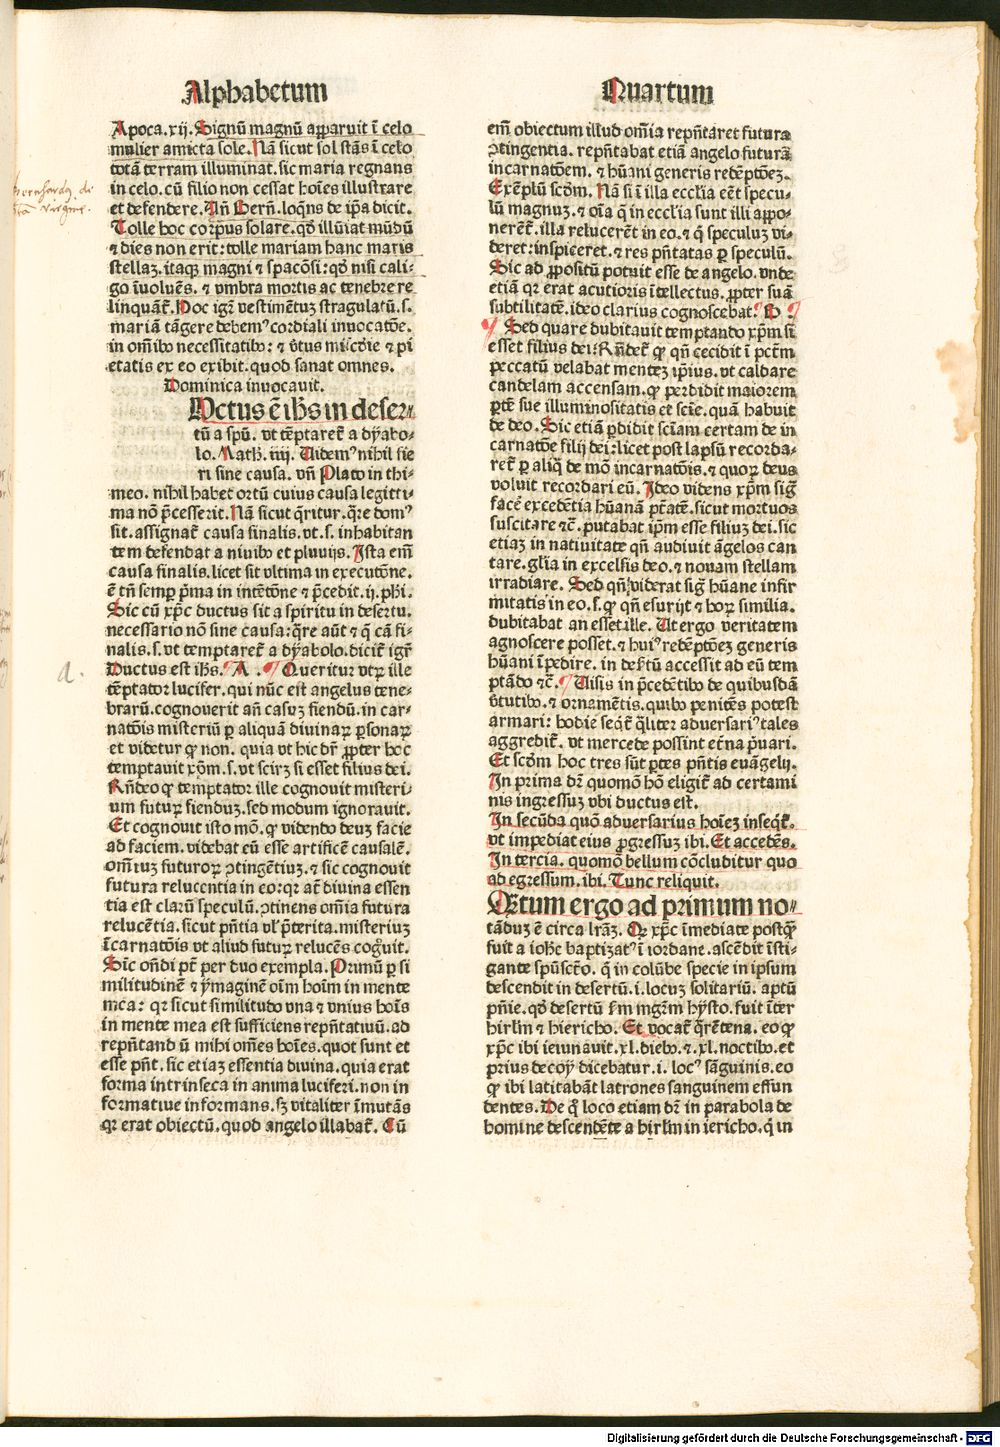 Alphabetum
Quartum
Apoca.xij. Signū magnū apparuit ī celo
mulier amicta sole. Nā sicut sol stās ī celo
totā terram illuminat. sic maria regnans
in celo. cū filio non cessat hoīes illustrare
et defendere. Vn̄ Bern̄. loqn̄s de ip̄a dicit.
Tolle hoc corpus solare. qd̄ illūiat mūdū
⁊ dies non erit: tolle mariam hanc maris
stellaz. itaqz magni ⁊ spacōsi: qd̄ nisi cali-
go īuoluēs. ⁊ vmbra mortis ac tenebre re
linquāt̄. Hoc igr̄ vestimētuz stragulatū. s.
mariā tāgere debemꝰ cordiali inuocatōe.
in om̄ibꝰ necessitatibꝰ: ⁊ v̄tus mīcdie ⁊ pi
etatis ex eo exibit. quod sanat omnes.
Dominica inuocauit.
Ductus ē ihs in deser-
tū a spū. vt tēptaret̄ a dyabo-
lo. Math. iiij. Videmꝰ nihil fie
ri sine causa. vn̄ Plato in thi-
meo. nihil habet ortū cuius causa legitti-
ma nō p̄cesserit. Nā sicut q̄ritur. q̄re domꝰ
sit. assignat̄ causa finalis. vt. s. inhabitan
tem defendat a niuibꝰ et pluuijs. Ista em̄
causa finalis. licet sit vltima in executōne.
ē tn̄ semꝑ p̄ma in intētōne ⁊ p̄cedit. ij. phi.
Sic cū xp̄c ductus sit a spiritu in desertu.
necessario nō sine causa: q̄re aūt ⁊ q̄ cā fi-
nalis. s. vt temptaret̄ a dyabolo. dicit̄ igr̄
Ductus est ihs. A . Queritur vtꝝ ille
tēptator lucifer. qui nūc est angelus tene-
brarū. cognouerit an̄ casuz fiendū. in car-
natōis misteriū ꝑ aliquā diuinaꝝ ꝑsonaꝝ
et videtur ꝙ non. quia vt hic dr̄ ꝓpter hoc
temptauit xp̄m. s. vt scirz si esset filius dei.
Rn̄deo ꝙ temptator ille cognouit misteri-
um futuꝝ fienduz. sed modum ignorauit.
Et cognouit isto mō. ꝙ videndo deuz facie
ad faciem. videbat eū esse artificē causalē.
om̄iuz futuroꝝ ꝯtingētiuz. ⁊ sic cognouit
futura relucentia in eo: qꝛ at̄ diuina essen
tia est clarū speculū. ꝯtinens om̄ia futura
relucētia. sicut pn̄tia vl̓ p̄terita. misteriuz
īcarnatōis vt aliud futuꝝ relucēs cog̓uit.
Sic on̄di pt̄ per duo exempla. Primū ꝑ si
militudinē ⁊ ymaginē oīm hoīm in mente
mea: qꝛ sicut similitudo vna ⁊ vnius hoīs
in mente mea est sufficiens repn̄tatiuū. ad
repn̄tand ū mihi om̄es hoīes. quot sunt et
esse pn̄t. sic etiaz essentia diuina. quia erat
forma intrinseca in anima luciferi. non in
formatiue informans. sꝫ vitaliter īmutās
qꝛ erat obiectū. quod angelo illabat̄. Cū
em̄ obiectum illud om̄ia repn̄taret futura
ꝯtingentia. repn̄tabat etiā angelo futurā
incarnatōem. ⁊ hūani generis redēptōez.
Exēplū scd̄m. Nā si ī illa ecclīa eēt specu-
lū magnuz. ⁊ oīa q̄ in ecclīa sunt illi appo-
nerēt̄. illa relucerēt in eo. ⁊ q̄ speculuz vi-
deret: inspiceret. ⁊ res pn̄tatas ꝑ speculū.
Sic ad ꝓpositū potuit esse de angelo. vnde
etiā qꝛ erat acutioris ītellectus. ꝓpter suā
subtilitatē. ideo clarius cognoscebat. B .
Sed quare dubitauit temptando xp̄m si
esset filius dei: Rn̄det̄ ꝙ qn̄ cecidit ī pctm̄
peccatū velabat mentez ip̄ius. vt caldare
candelam accensam. ꝙ perdidit maiorem
ꝑtē sue illuminositatis et scīe. quā habuit
de deo. Sic etiā ꝑdidit scīam certam de in
carnatōe filij dei: licet post lapsū recorda-
ret̄ ꝑ aliq̄ de mō incarnatōis. ⁊ quoꝝ deus
voluit recordari eū. Ideo videns xp̄m sig̓
facē excedētia hūanā ptātē. sicut mortuos
suscitare ⁊c̄. putabat ip̄m esse filiuz dei. sic
etiaz in natiuitate qn̄ audiuit āgelos can
tare. glīa in excelsis deo. ⁊ nouam stellam
irradiare. Sed qn̄ viderat sig̓ hūane infir
mitatis in eo. s. ꝙ qn̄ esurijt ⁊ hoꝝ similia.
dubitabat an esset ille. Ut ergo veritatem
agnoscere posset. ⁊ huiꝰ redēptōez generis
hūani īpedire. in de̓tū accessit ad eū tem
ptādo ⁊c̄. Visis in p̄cedētibꝰ de quibusdā
v̓tutibꝰ. ⁊ ornamētis. quibꝰ penitēs potest
armari: hodie seqt̄ q̄liter aduersariꝰ tales
aggredit̄. vt mercede possint et̓na p̓uari.
Et scd̄m hoc tres sūt ꝑtes pn̄tis euāgelij.
In prima dr̄ quomō hō eligit̄ ad certami
nis ingressuz vbi ductus est.
In secūda quō aduersarius hoīez inseqt̄.
vt impediat eius ꝓgressuz ibi. Et accedēs.
In tercia. quomō bellum cōcluditur quo
ad egressum. ibi. Tunc reliquit.
Qꝛtum ergo ad primum no-
tāduz ē circa lr̄az. Qꝛ xp̄c īmediate postq̄
fuit a ioh̄e baptizatꝰ ī iordane. ascēdit īsti-
gante spūsctō. q̄ in colūbe specie in ipsum
descendit in desertū. i. locuz solitariū. aptū
pn̄ie. qd̄ desertū fm mgr̄m hysto. fuit īter
hirlm̄ ⁊ hiericho. Et vocat̄ q̄rētena. eo ꝙ
xp̄c ibi ieiunauit. xl. diebꝰ. ⁊. xl. noctibꝰ. et
prius decoy dicebatur. i. locꝰ sāguinis. eo
ꝙ ibi latitabāt latrones sanguinem effun
dentes. De q̄ loco etiam dr̄ in parabola de
homine descendēte a hirlm̄ in iericho. q̄ in
a.
Digitalisierung gefördert durch die Deutsche Forschungsgemeinschaft - DFG